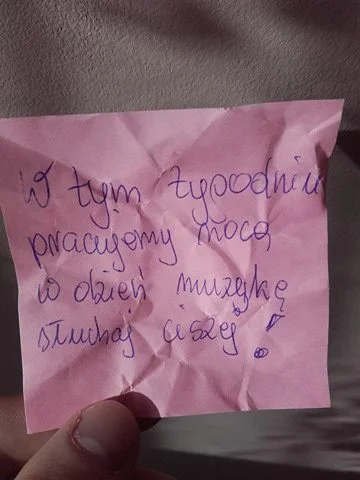 W tym tygodniu
pracujemy nocą
w dzień muzykę
słuchaj ciszej!